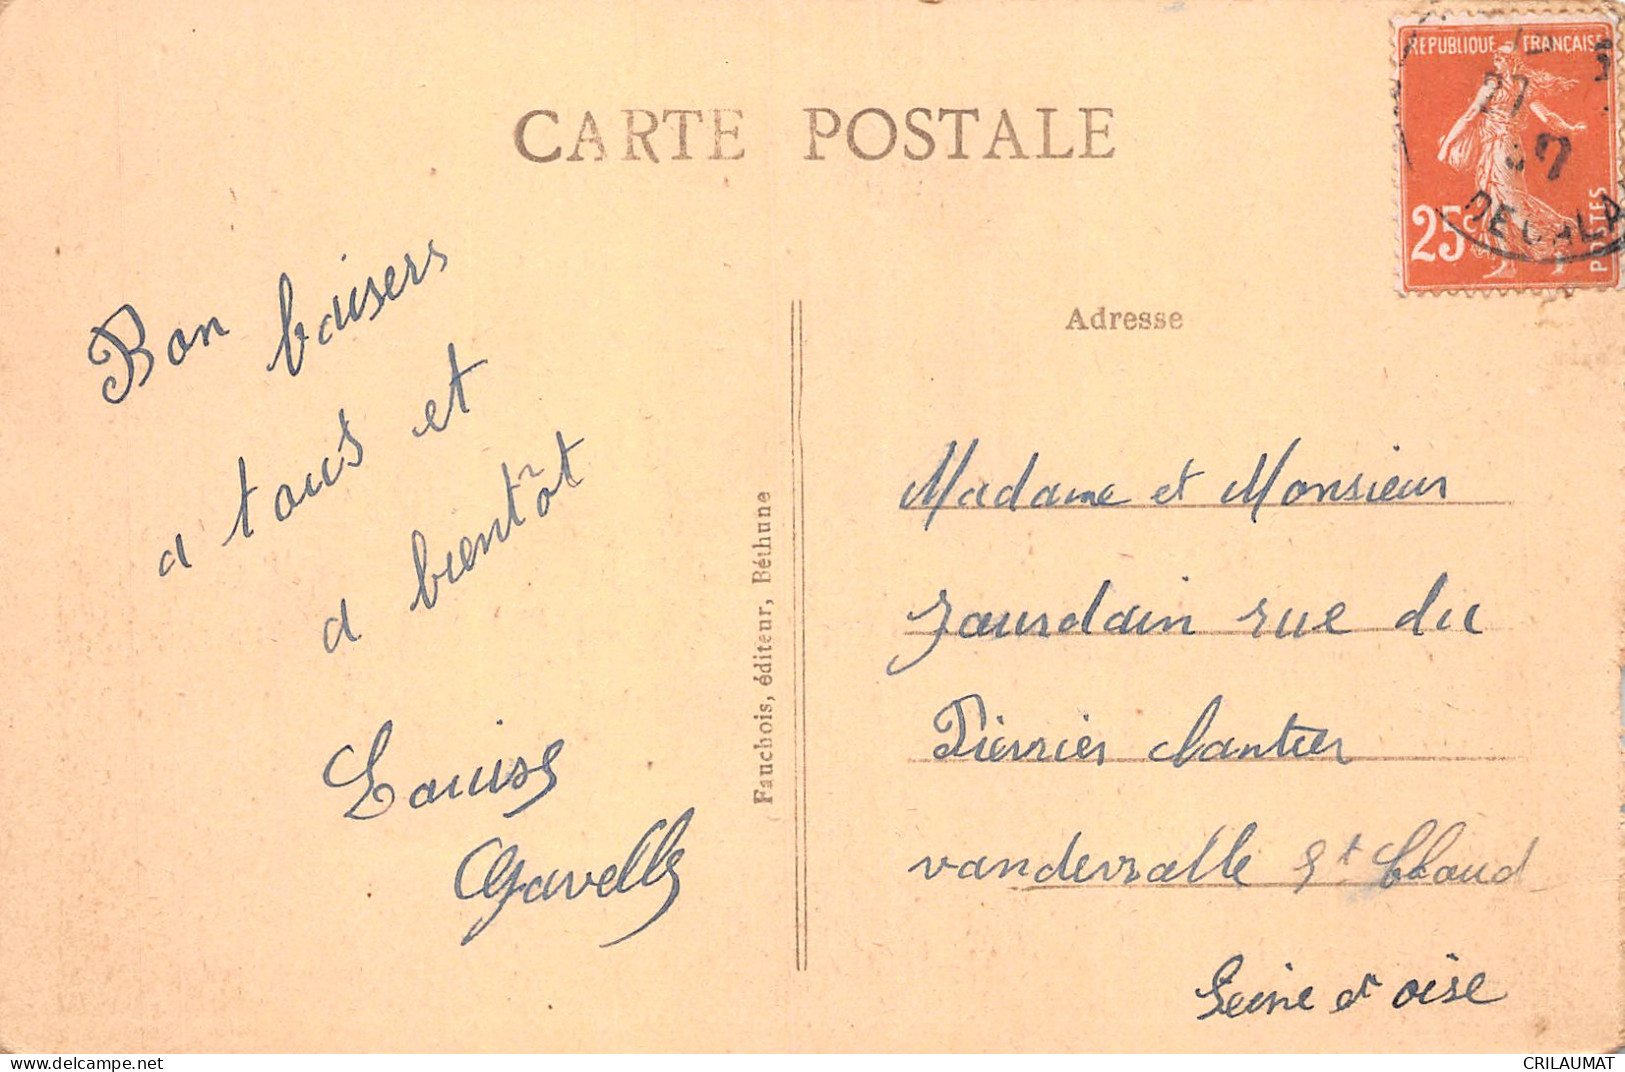 CARTE POSTALE
REPUBLIQUE FRANÇAISE
25c
POSTES
27
Bon baisers
a tous et
a bientôt
Louise
Gavelle
Fauchois, éditeur, Béthune
Adresse
Madame et Monsieur
Jourdain rue du
Pierrier chantier
vanderralle St Cloud
Seine et oise
CRILAUMAT